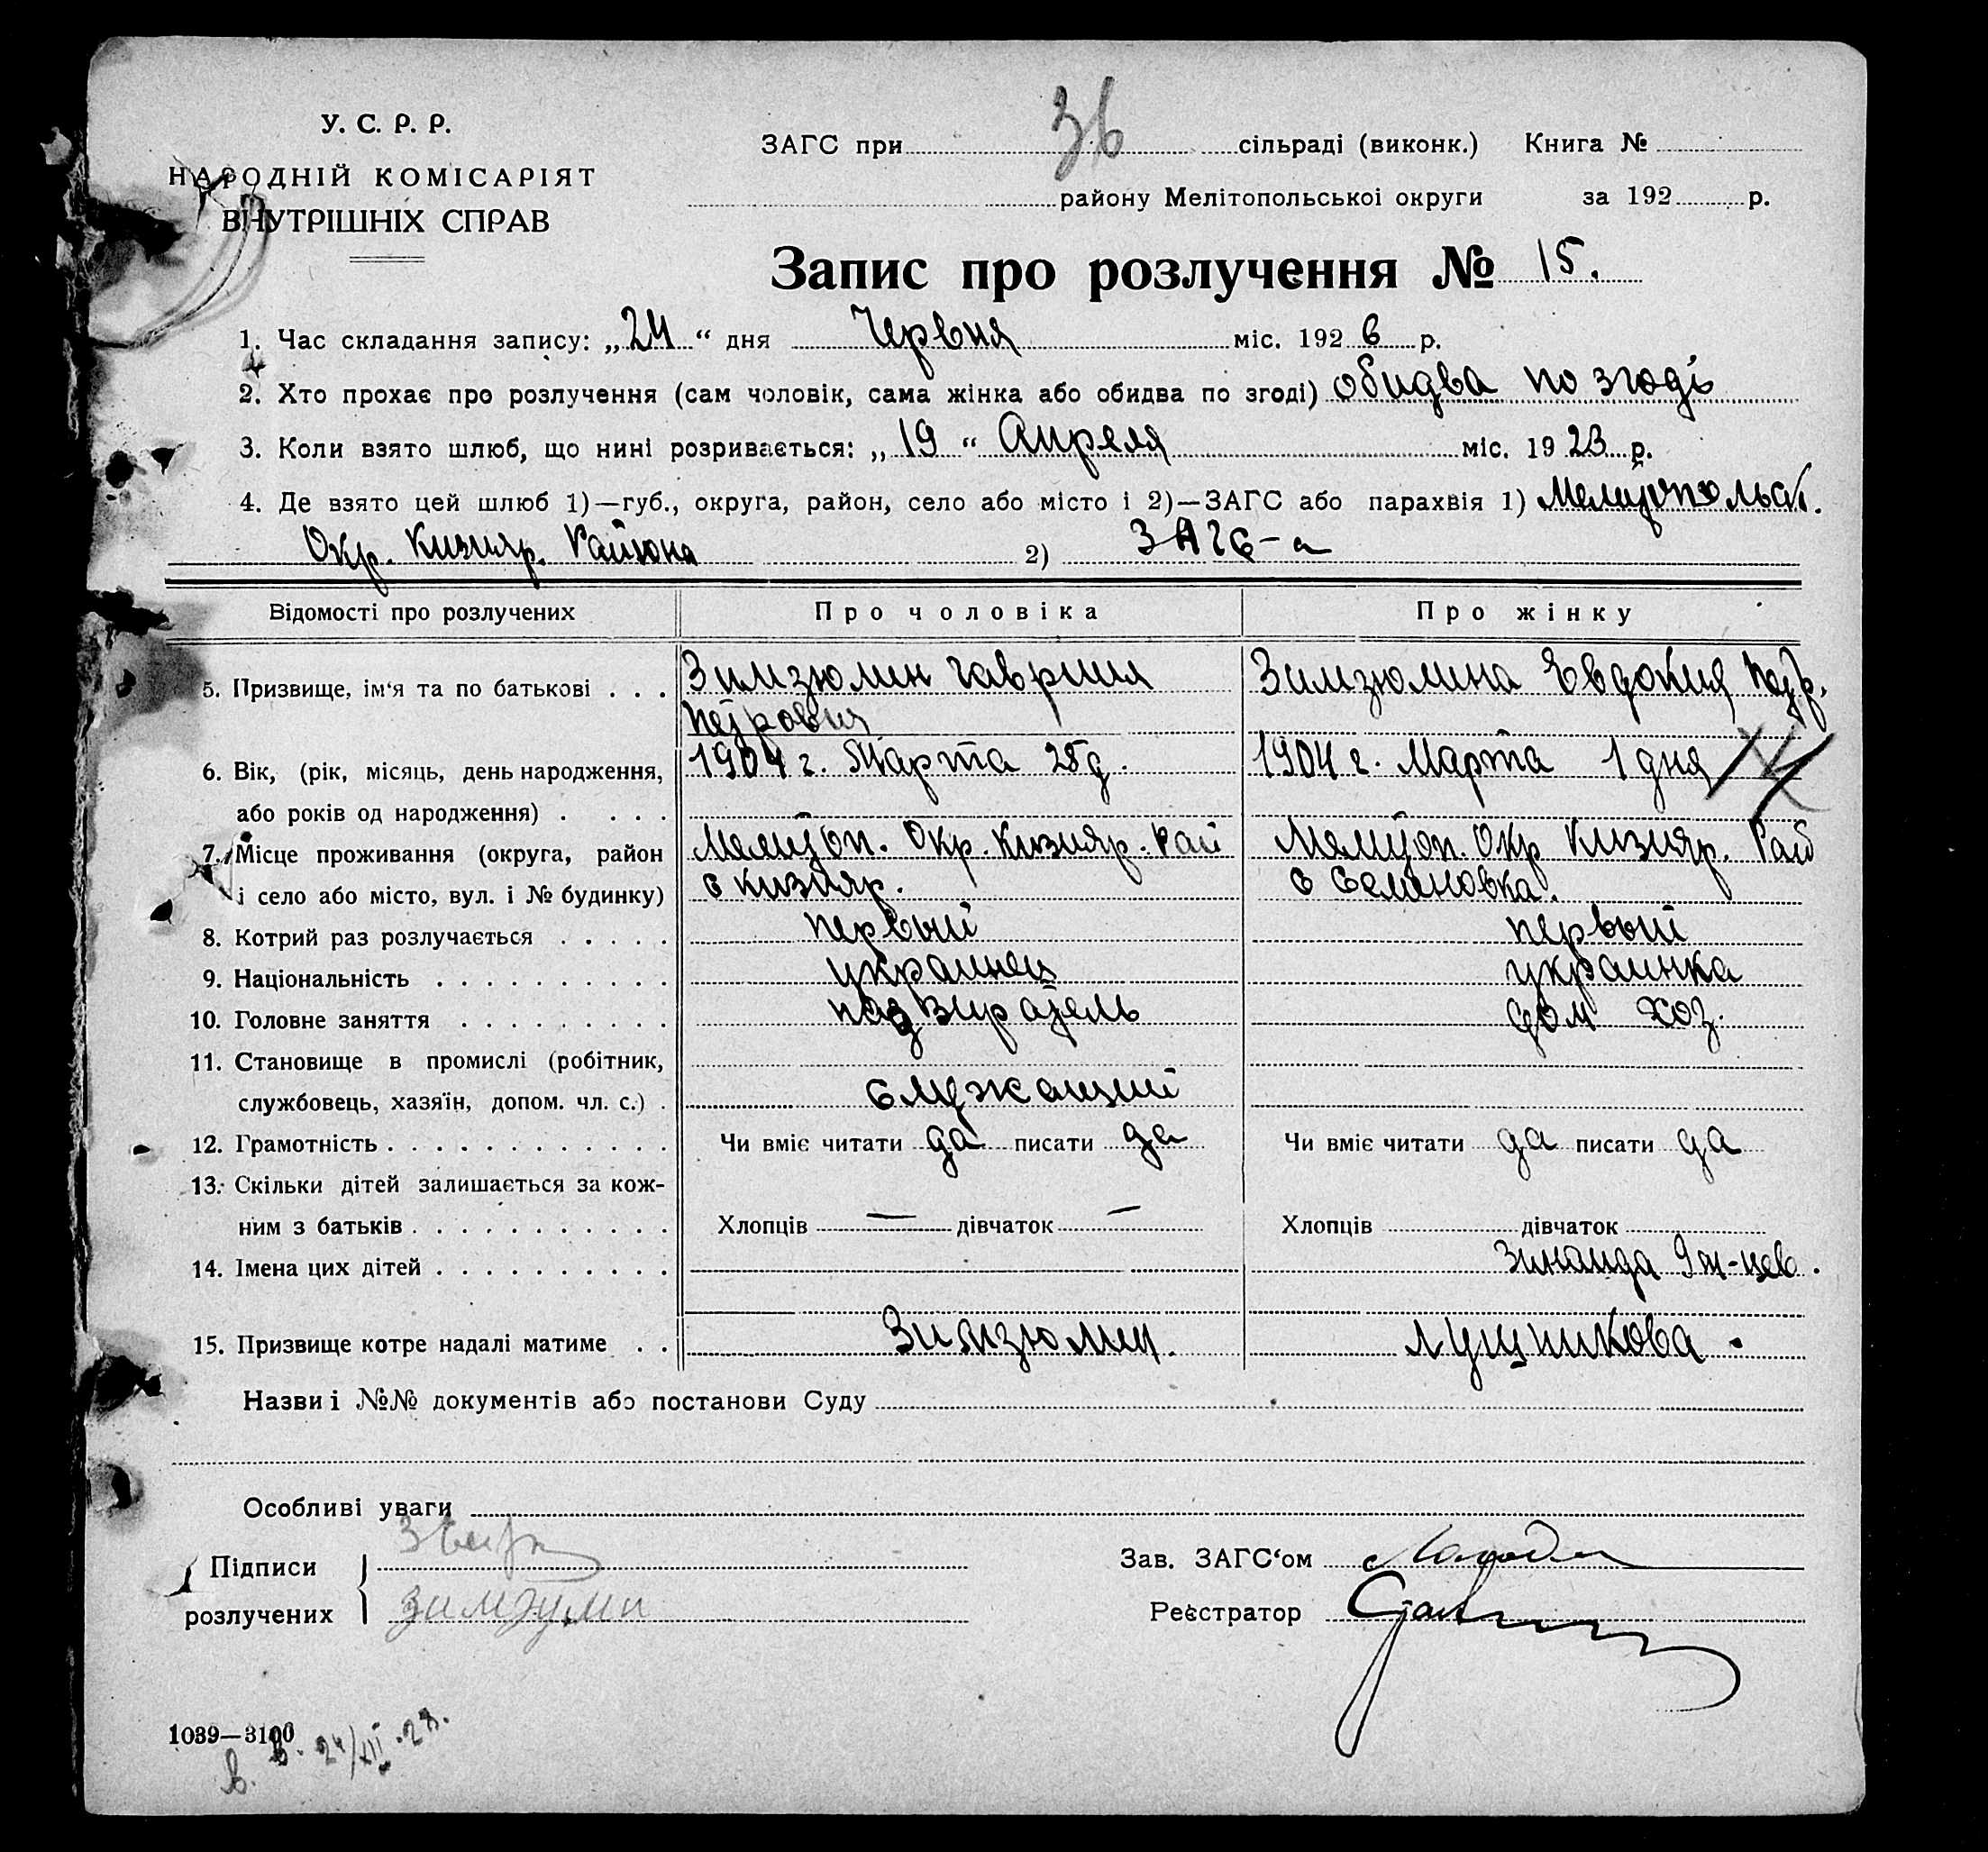 У. С. Р. Р.
НАРОДНІЙ КОМІСАРІЯТ
ВНУТРІШНІХ СПРАВ
36
ЗАГС при сільраді (виконк.) Книга №
району Мелітопольської округи за 192 р.
Запис про розлучення № 15.
1. Час складання запису: „24“ дня Червня міс. 1926 р.
2. Хто прохає про розлучення (сам чоловік, сама жінка або обидва по згоді) обидва по згоді
3. Коли взято шлюб, що нині розривається: „19“ Апреля міс. 1923 р.
4. Де взято цей шлюб 1)—губ., округа, район, село або місто і 2)—ЗАГС або парахвія 1) Мелитопольск.
Окр. Кизияр. Района 2) ЗАГС-а
Відомості про розлучених Про чоловіка Про жінку
5. Призвище, ім'я та по батькові . . . Зимзюлин Гавриил Зимзюлина Евдокия Петр.
Петрович
6. Вік, (рік, місяць, день народження, 1904 г. Марта 25 д. 1904 г. Марта 1 дня
або років од народження) . . . .
7. Місце проживання (округа, район Мелитоп. Окр. Кизияр. Рай Мелитоп. Окр Кизияр. Рай
і село або місто, вул. і № будинку) с Кизияр. с Семеновка.
8. Котрий раз розлучається . . . . . первый первый
9. Національність . . . . . . . . . . украинец украинка
10. Головне заняття . . . . . . . . . надзиратель дом хоз.
11. Становище в промислі (робітник,
службовець, хазяїн, допом. чл. с.) . служащий
12. Грамотність . . . . . . . . . . . . Чи вміє читати да писати да Чи вміє читати да писати да
13. Скільки дітей залишається за кож-
ним з батьків . . . . . . . . . . . Хлопців — дівчаток — Хлопців дівчаток
14. Імена цих дітей . . . . . . . . . . Зинаида 9 м-цев.
15. Призвище котре надалі матиме . . Зимзюлин. Лущикова.
Назви і №№ документів або постанови Суду
Особливі уваги
Підписи
розлучених
Зав. ЗАГС'ом
Реєстратор
1039—3100